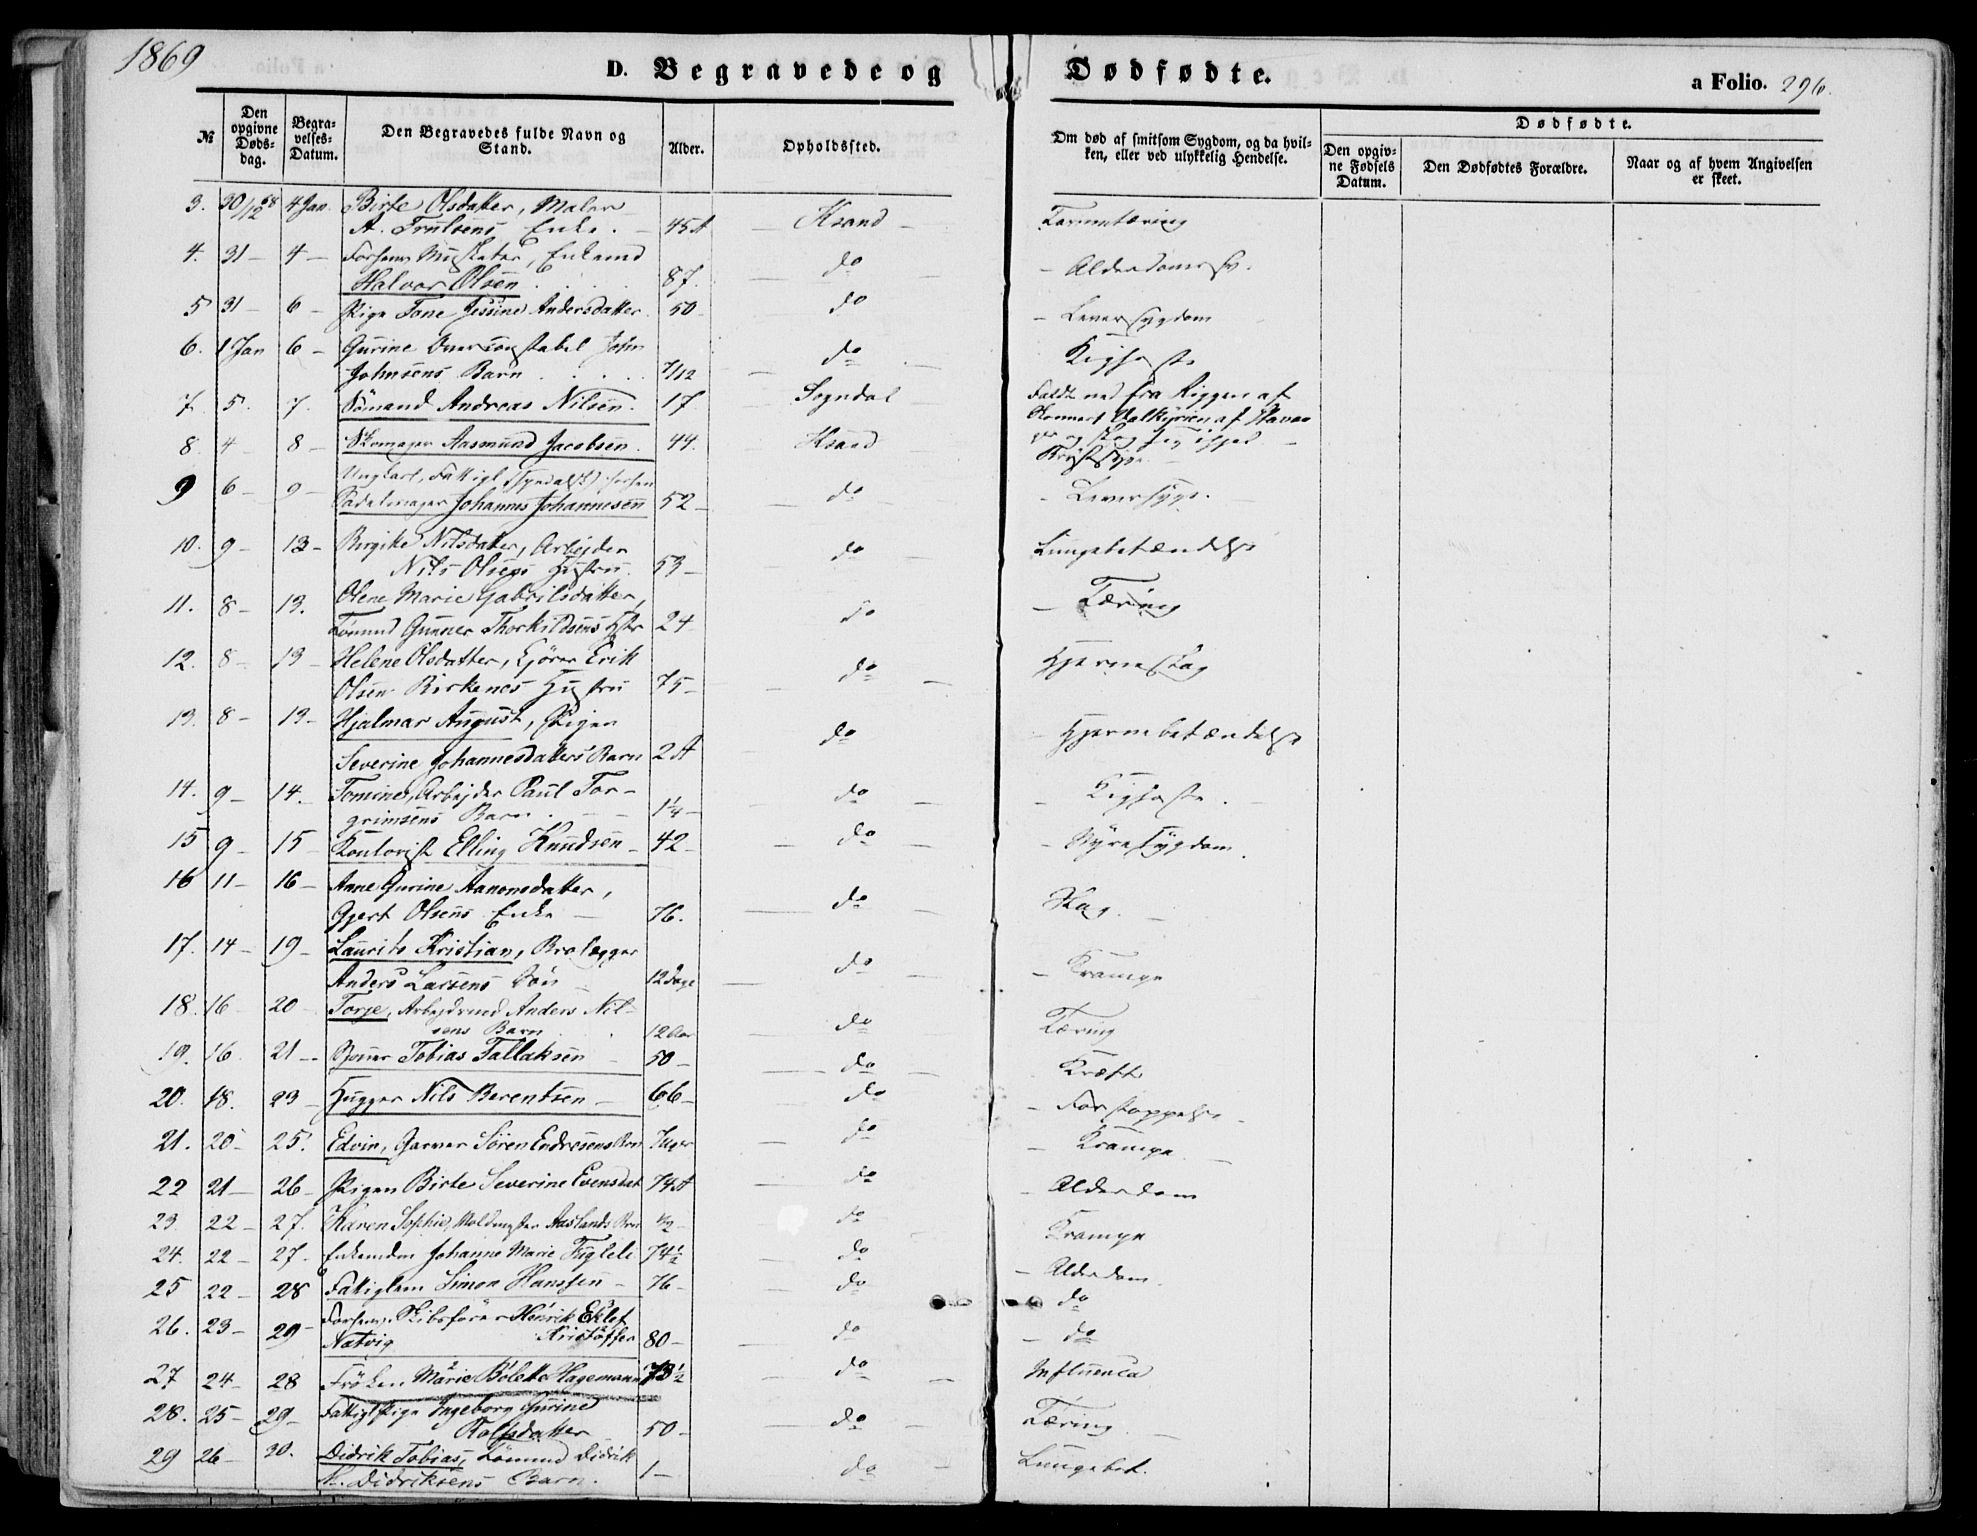 1869
D. Begravede og Dødfødte. a Folio. 296.
№ Den opgivne Døds-dag. Begra-velses-Datum. Den Begravedes fulde Navn og Stand. Alder. Opholdssted. Om død af smitsom Sygdom, og da hvil-ken, eller ved ulykkelig Hendelse. Dødfødte. Den opgiv-ne Fødsels Datum. Den Dødfødtes Forældre. Naar og af hvem Angivelsen er skeet.
3. 30/12 68 4 Jan. Birte Olsdatter, Maler
A. Trulsens Enke. 45 A Ksand Tarmetæring
4. 31 4 Forhenv. Enkemd
Halvor Olsen 87. do Alderdomssv.
5 31 6 Pige Tone Jessine Andersdatter 50 do Leversygdom
6. 1 Jan 6 Gurine Overconstabel John
Johnsens Barn 7/12 do Kighoste
7. 5. 7. Sömand Andreas Nilsen. 17 Sogndal Faldt ned fra Riggen af
Skonnert Valkyrien af Stavan
ger og slog sig ihjel
8. 4 8 Skomager Aasmund Jacobsen 44. Ksand Brystsyge
9 6 9 Ungkarl, Fattigl. (Spedalsk) forhen
Sadelmager Johannes Johannesen 52 do Leversyge.
10. 9 13 Birgitte Nilsdatter, Arbejder
Nils Olsens Hustru. 53 do Lungebetændelse
11. 8 13. Olene Marie Gabrilsdatter,
Tömmd Gunner Thorkildsens Hstr 24 do Tæring
12. 8 13 Helene Olsdatter, Kjörer Erik
Olsen Birkenes Hustru 75 do Hjerneslag
13. 8 13 Hjalmar August, Pigen
Severine Johannesdatters Barn 2 A do Hjernebetændelse
14. 9 14. Tomine, Arbejder Paul Tor-
grimsens Barn 1¼ do Kighoste.
15 9 15 Kontorist Elling Knudsen 42 do Nyresygdom
16 11 16 Anne Gurine Aanonsdatter,
Gjert Olsens Enke 76. do Slag.
17. 14 19 Laurits Kristian, Brolægger
Anders Larsens Sön 12 Dage do Krampe
18. 16 20 Torje, Arbejdsmd Anders Nil-
sens Barn 12 Aar do Tæring
19. 16. 21 Tobias Tallaksen 50 do Kræft
20. 18. 23 Hugger Nils Berentsen 66 do Forstoppelse
21. 20 25. Edvin, Garver Sören Endresens Brn do Krampe
22 21 26 Pigen Birte Severine Evensdat 74 A do Alderdom
23. 22 27. Karen Sophie, Aaslands Brn ½ do Krampe
24. 22 27. Enkemdm Johanne Marie Fugleli 74½ do Alderdom.
25 22 28 Fattiglem Simon Hanssen 76 do do
26. 23 29 Forhenv. Skibsförer Henrik Eklef
Natvig Kristoffer 80 do do
27 24 28 Fröken Marie Bolette Hagemann 73½ do Influenca
28. 25 29 Fattigl. Pige Ingeborg Gurine
Rolfsdatter 50 do Tæring
29 26 30. Didrik Tobias, Tömmd Didrik
M. Didriksens Barn. 1 do Lungebet.